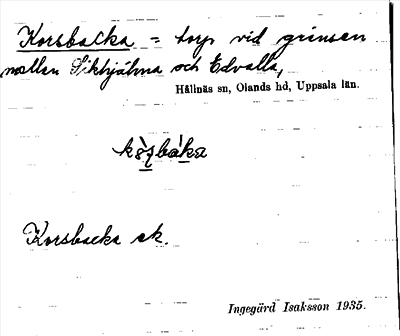 Korsbacka = torp vid gränsen
mellan Sikhjälma och Edvalla,
Hållnäs sn, Olands hd, Uppsala län.
Korsbacka ek.
Ingegärd Isaksson 1935.